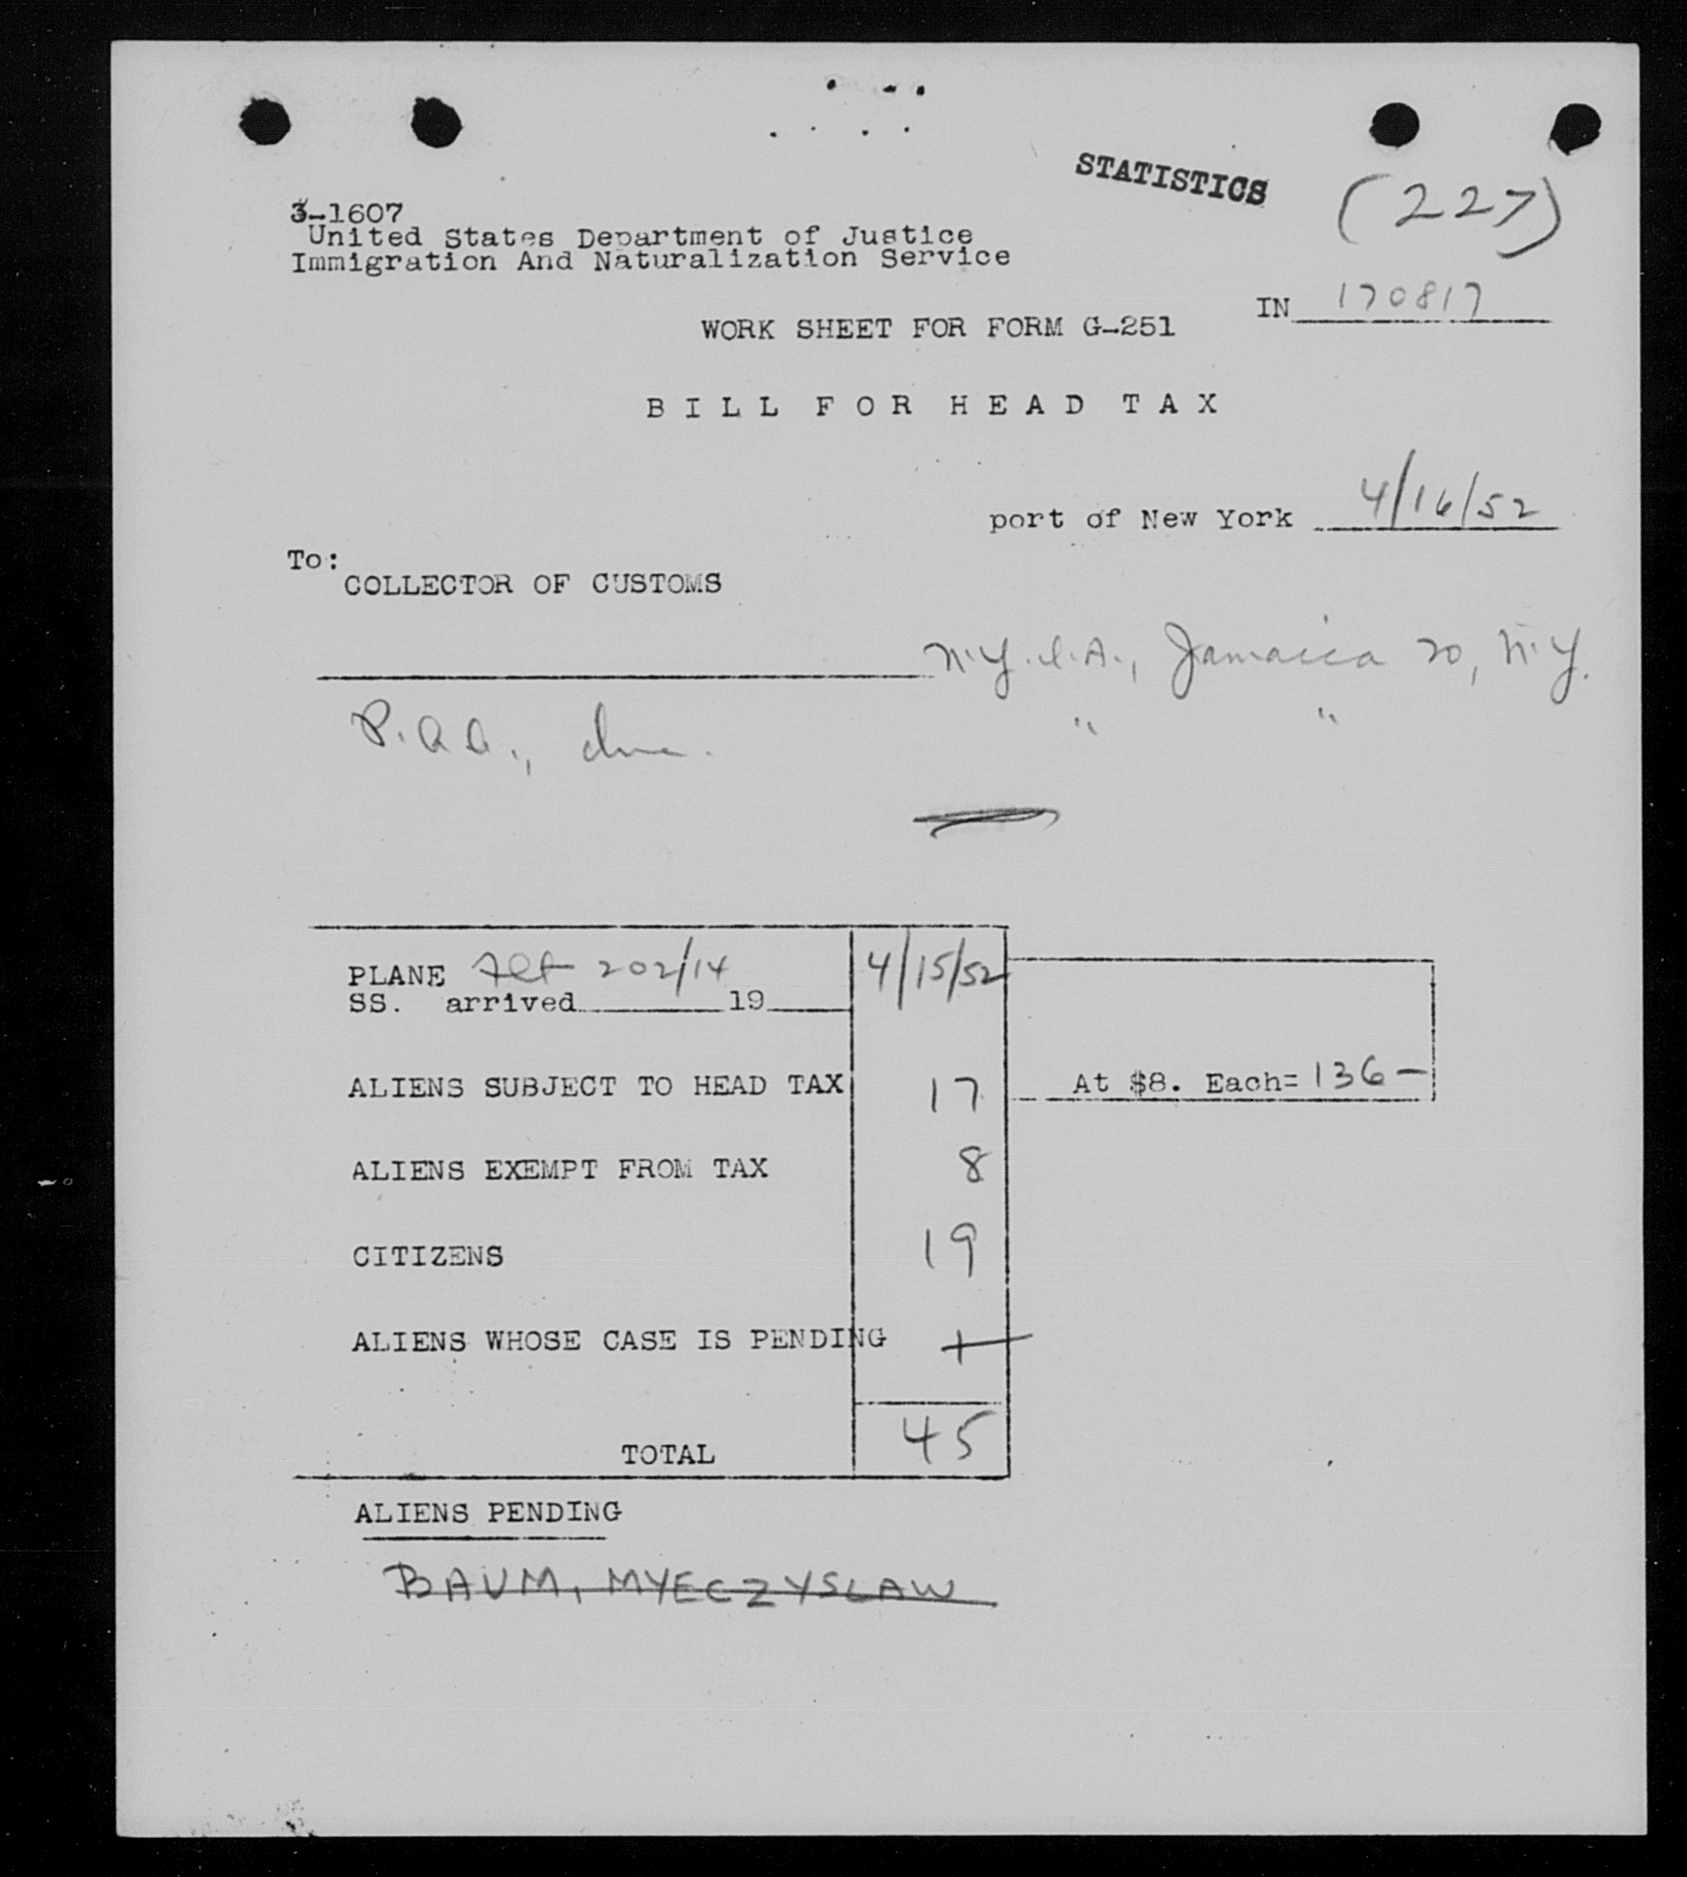 STATISTICS
(227)
3-1607
United States Department of Justice
Immigration And Naturalization Service
IN 170817
WORK SHEET FOR FORM G-251
BILL FOR HEAD TAX
port of New York 4/16/52
To:
COLLECTOR OF CUSTOMS
N.Y.I.A., Jamaica 20, N.Y.
P.A.A., Inc. " "
PLANE Flt 202/14 4/15/52
SS. arrived 19
ALIENS SUBJECT TO HEAD TAX 17 At $8. Each= 136 —
ALIENS EXEMPT FROM TAX 8
CITIZENS 19
ALIENS WHOSE CASE IS PENDING 1
TOTAL 45
ALIENS PENDING
BAUM, MYECZYSLAW